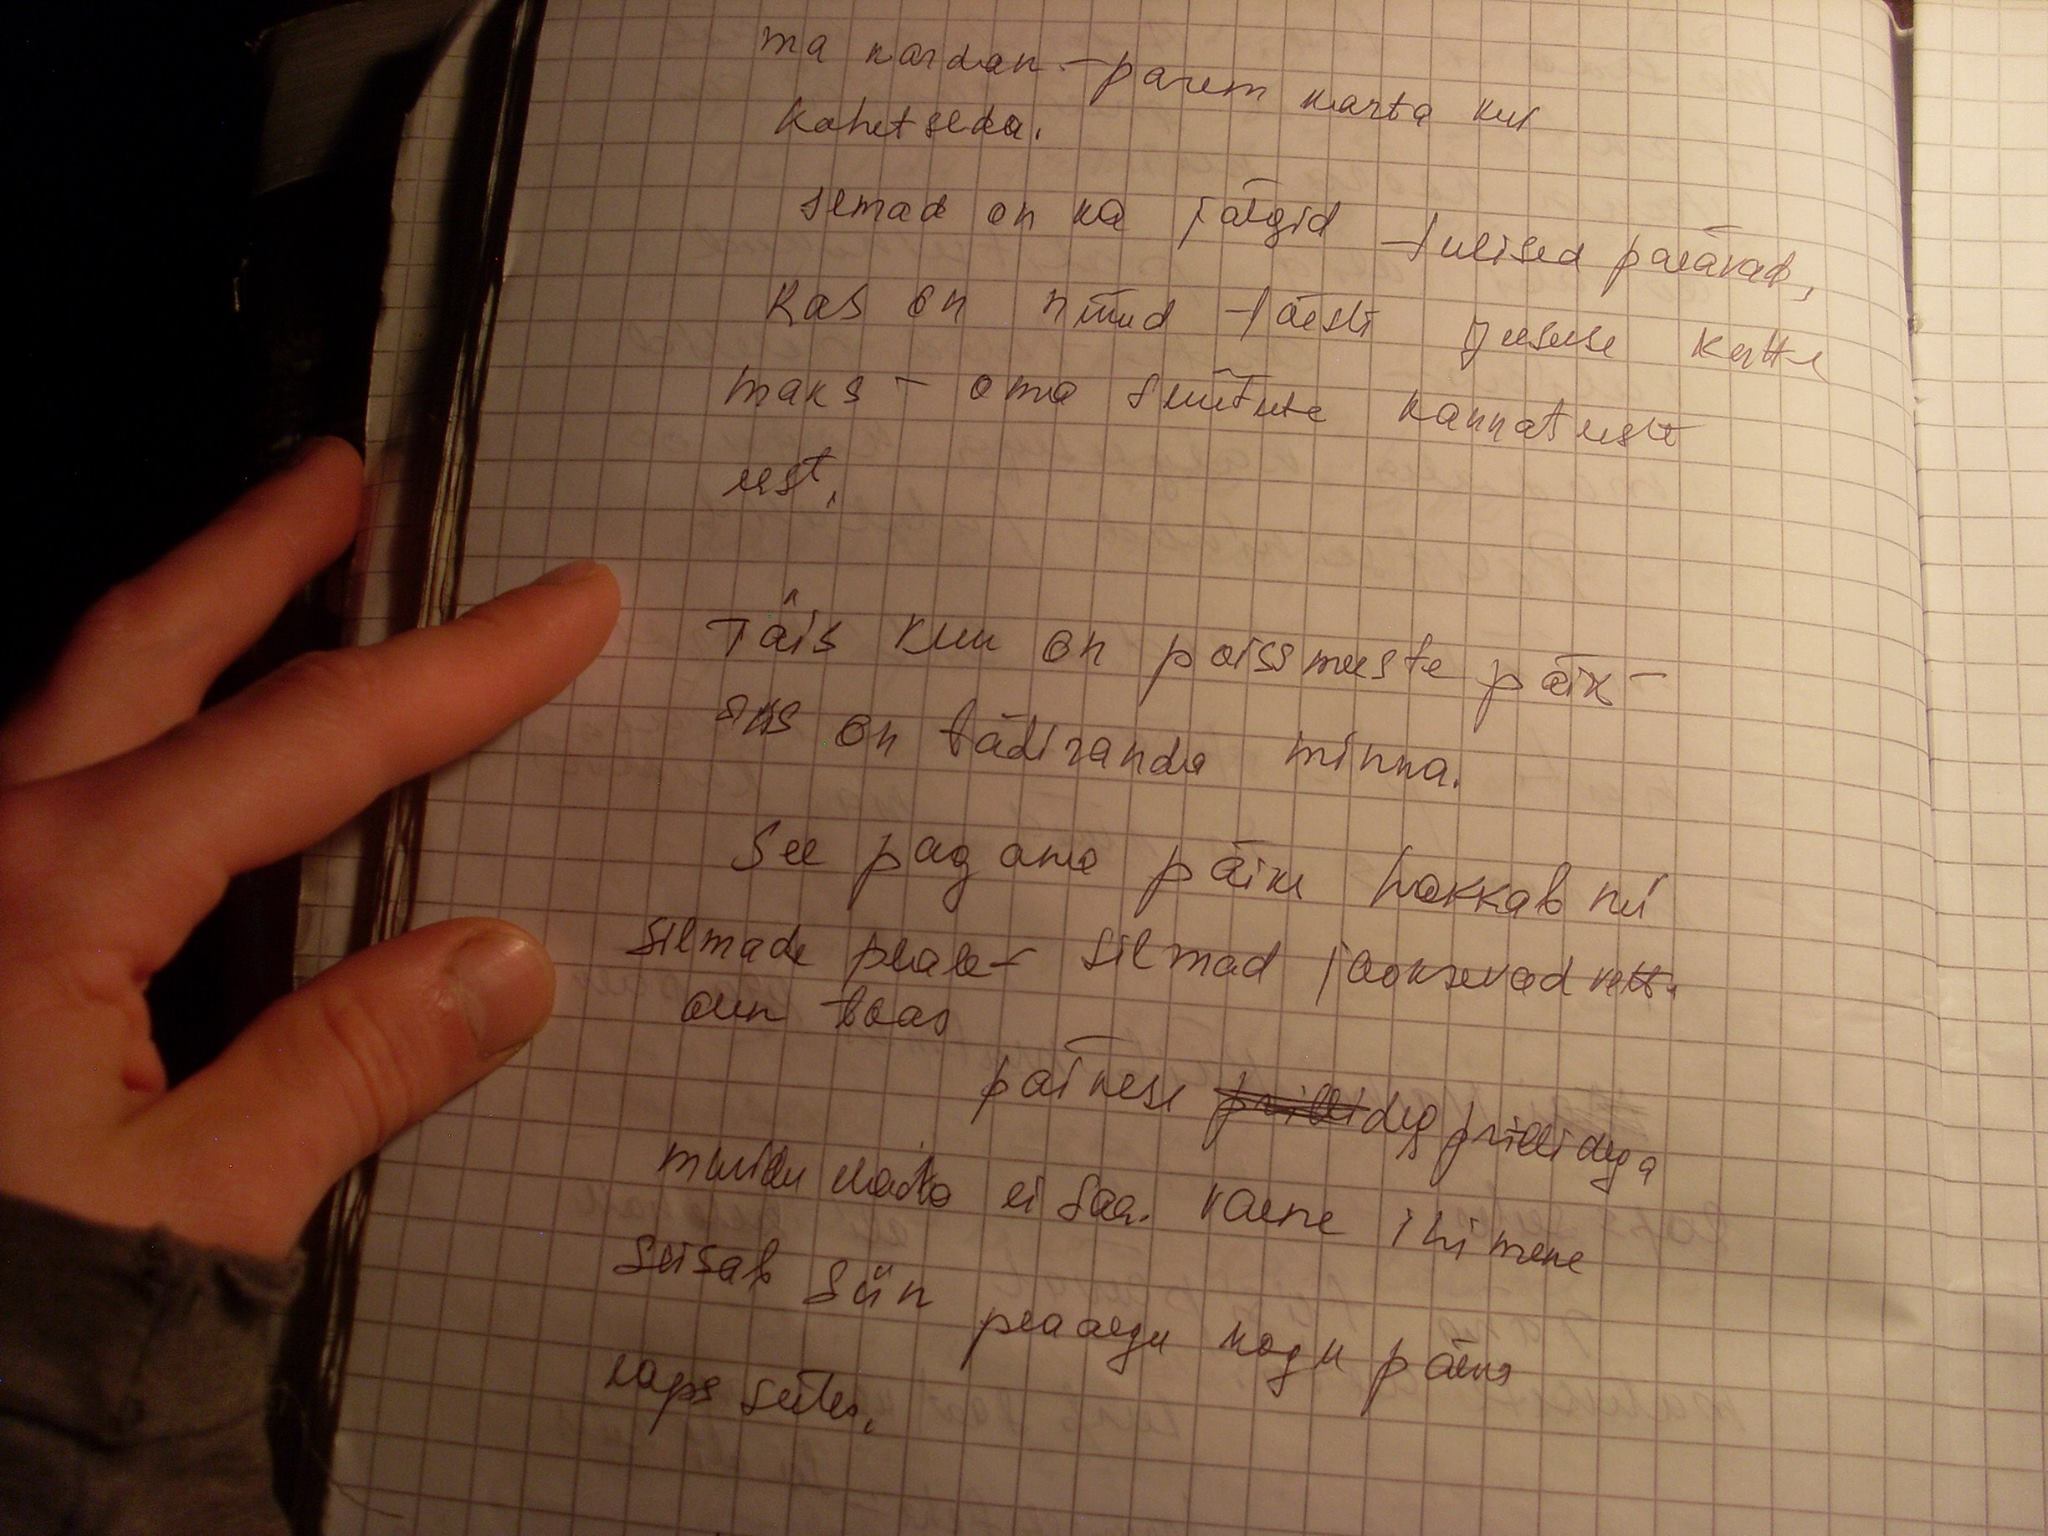 ma kardan - parem karta kui
kahetseda.
semad on ka järgid tulised päevad,
kas on nüüd tõesti Jeesuse kätte
maks - oma süütute kannatuste
eest.
Täis kuu on poissmeste päik-
on tädiranda minna.
See pagana päike hakkab nii
silmade peale - silmad jooksevad vett.
aen taas
päikese prillidega
muidu elada ei saa. vaene inimene
seisab siin peaaegu kogu päeva
laps seiles.